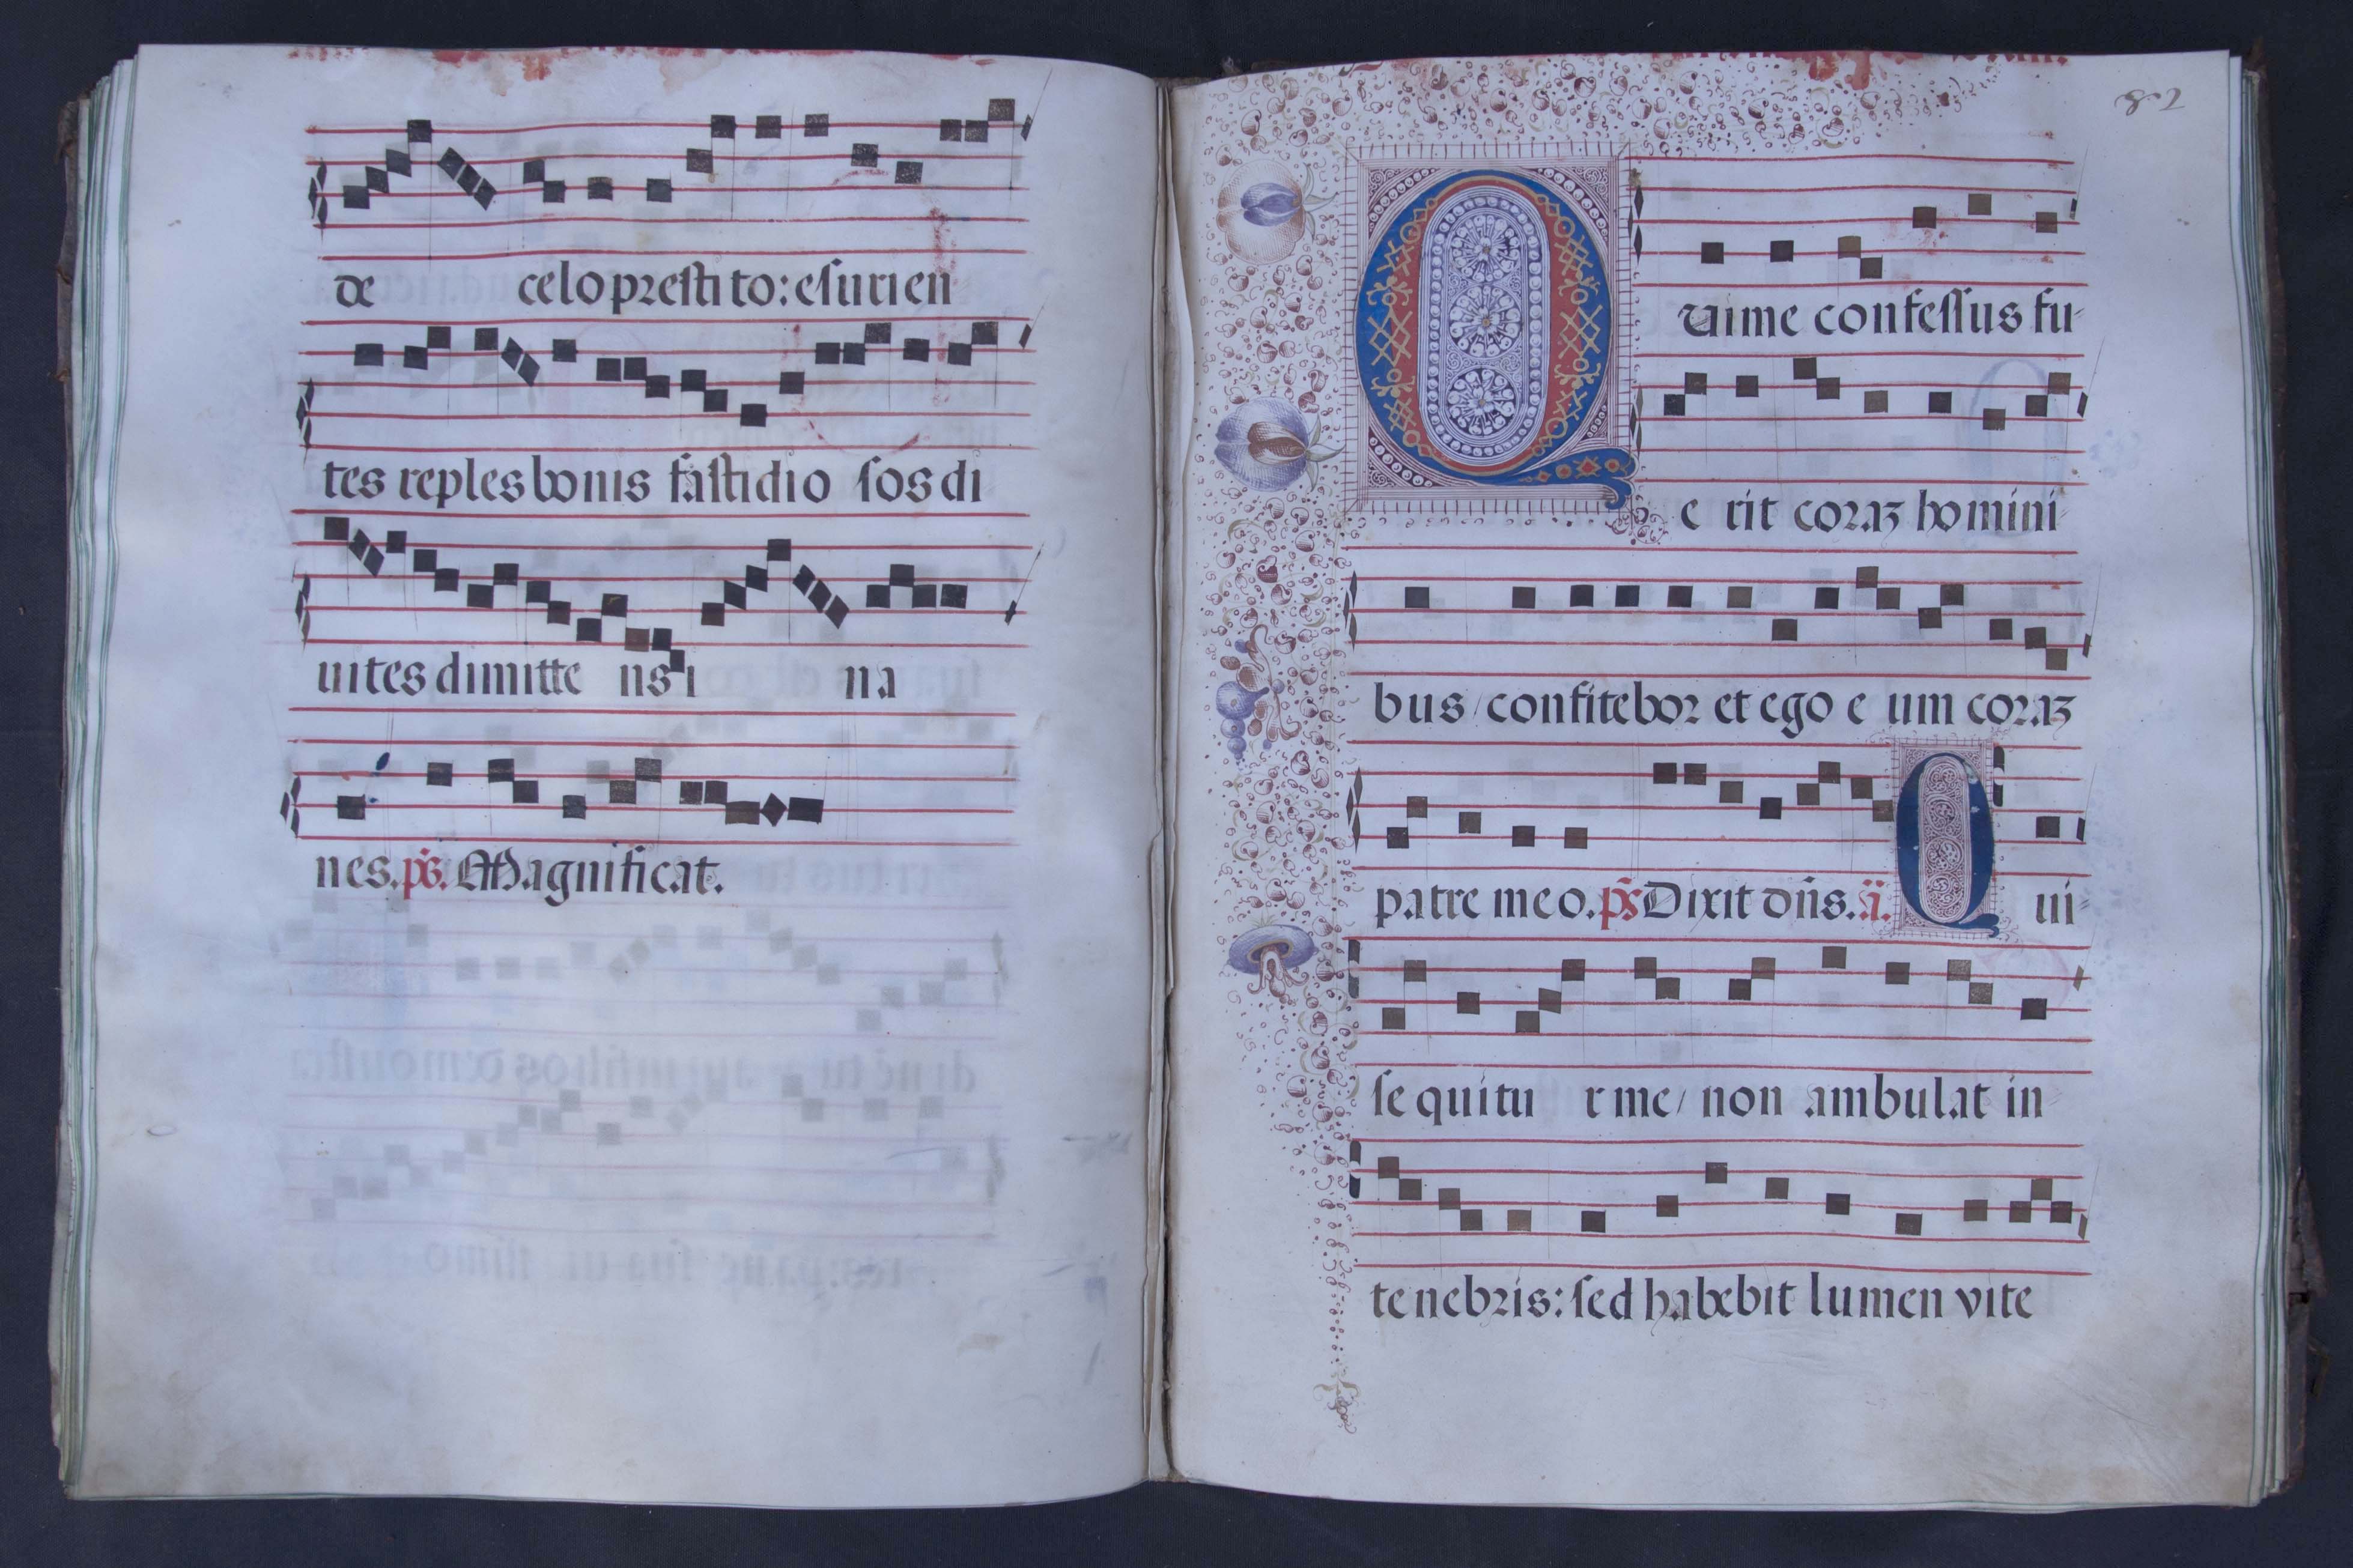 de celo prestito: esurien
tes reples bonis fastidio sos di
uites dimitte ns i na
nes. ps. Magnificat.
Qui me confessus fu-
e rit coraz homini
bus / confitebor et ego e um coraz
patre meo. ps Dixit dns. a. Qui-
sequitu r me / non ambulat in
tenebris: sed habebit lumen vite